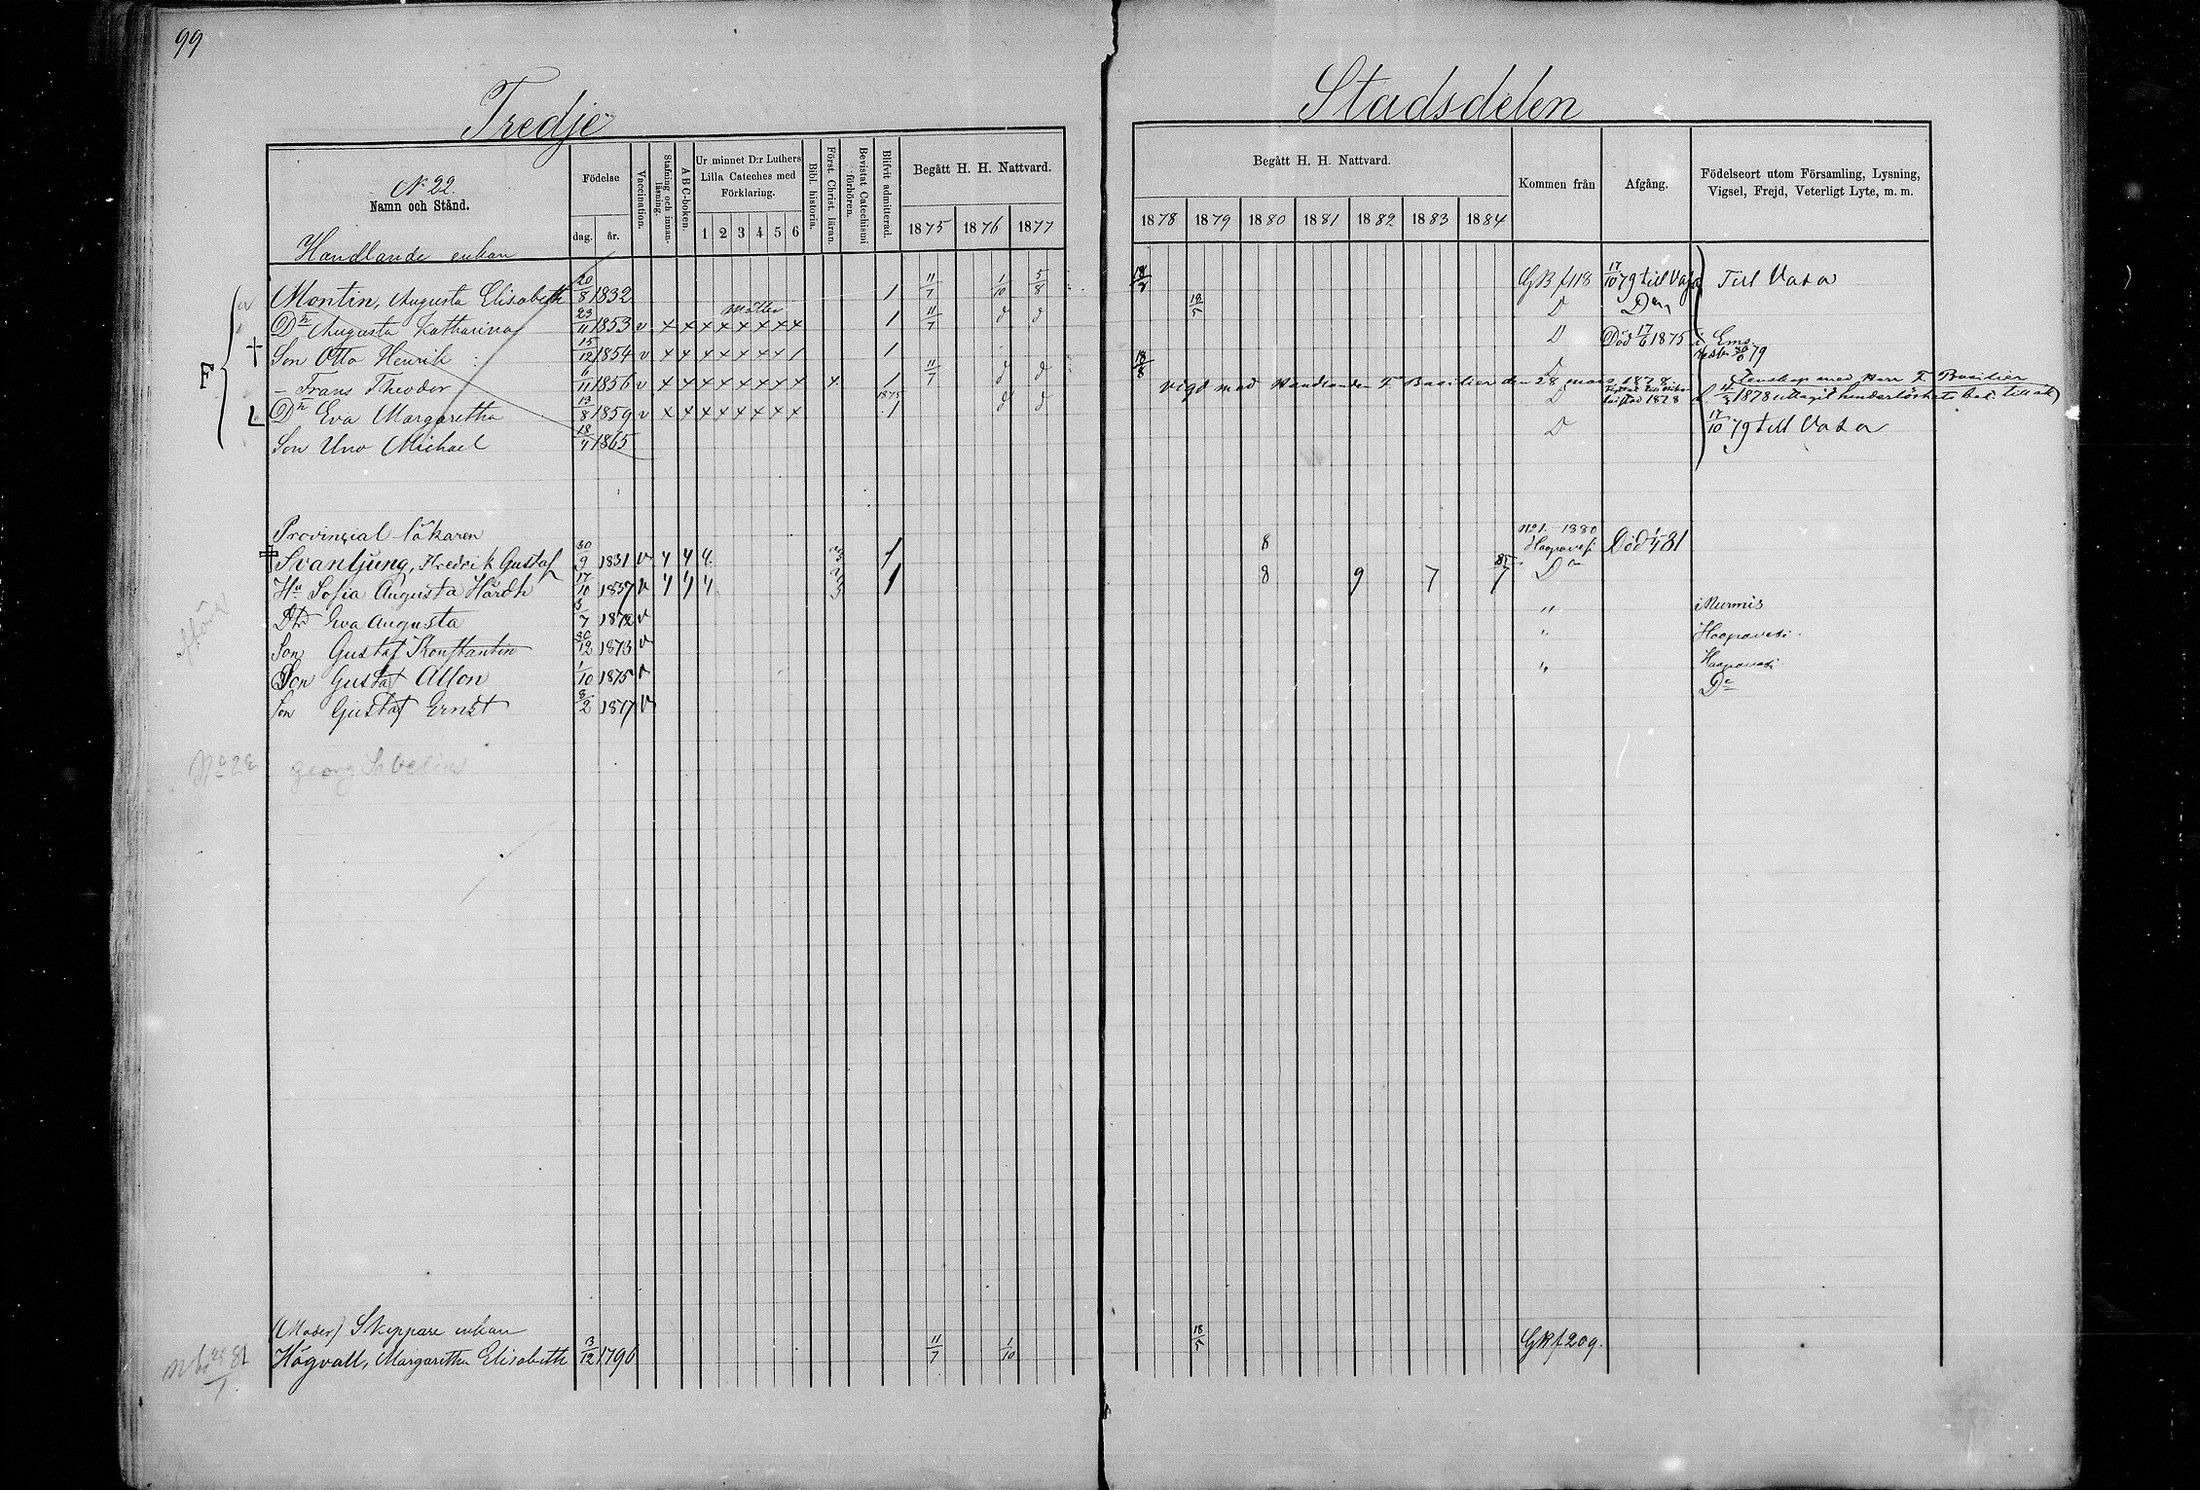 99
Tredje Stadsdelen
N 22.
Namn och Stånd.
Födelse
dag. år.
Vaccination.
Stafning och innan-läsning.
ABC-boken.
Ur minnet D:r Luthers Lilla Cateches med Förklaring.
1 2 3 4 5 6
Bibl. historia.
Först. Christ. läran.
Bevistat Catechismi förhören.
Blifvit admitterad.
Begått H. H. Nattvard.
1875 1876 1877
Begått H. H. Nattvard.
1878 1879 1880 1881 1882 1883 1884
Kommen från
Afgång.
Födelseort utom Församling, Lysning, Vigsel, Frejd, Veterligt Lyte, m. m.
Handlande enkan
Montin, Augusta Elisabeth 20/8 1832 1 11/7 1/10 5/8 GB f 118 17/10 79 till Vasa Till Vasa
Dr Augusta Katharina 23/11 1853 v x x x x x x x x 1 11/7 d d 18/5 D
† Son Otto Henrik 15/12 1854 v x x x x x x x 1 1 D Död 17/6 1875 i Ems
F
– Frans Theodor 6/11 1856 v x x x x x x x x x 1 11/7 d d 18/8
vigd med Handlanden F Basilier den 28 mars 1878
1875
L Dr Eva Margaretha 13/8 1859 v x x x x x x x x 1 d d D 4/3 1878 uttagit hinderlöshets bet. till äktenskap med Herr F. Basilier
Son Uno Michael 18/4 1865 D 17/10 79 till Vasa
Provinzial-läkaren
Svanljung, Fredrik Gustaf 30/9 1831 v 4 4 4 1 8 No 1. 1880 Haapavesi Död 81
Hu Sofia Augusta Hårdh 17/10 1837 v 4 4 4 1 8 9 7 85 7 Do
Dtr Eva Augusta 3/7 1872 v " i Nurmis
Son Gustaf Konstantin 30/12 1873 v " Haapavesi.
Son Gustaf Allon 1/10 1875 v " Haapavesi
Son Gustaf Ernst 3/2 1877 v Do
No 22 Georg Sabelius
(Moder) Skeppare enkan
Högvall, Margaretha Elisabeth 13/12 1796 11/7 1/10 18/5 GB f 209.